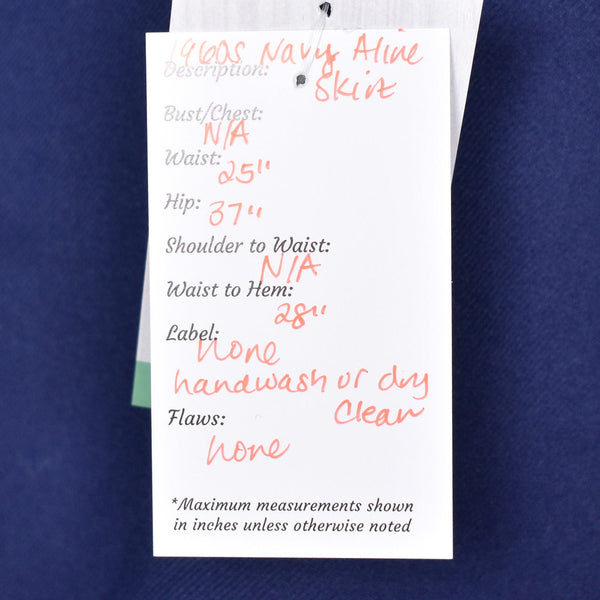 1960s Navy Aline
Description:
Skirt
Bust/Chest:
N/A
Waist:
25"
Hip:
37"
Shoulder to Waist:
N/A
Waist to Hem:
28"
Label:
none
handwash or dry
Clean
Flaws:
none
*Maximum measurements shown
in inches unless otherwise noted